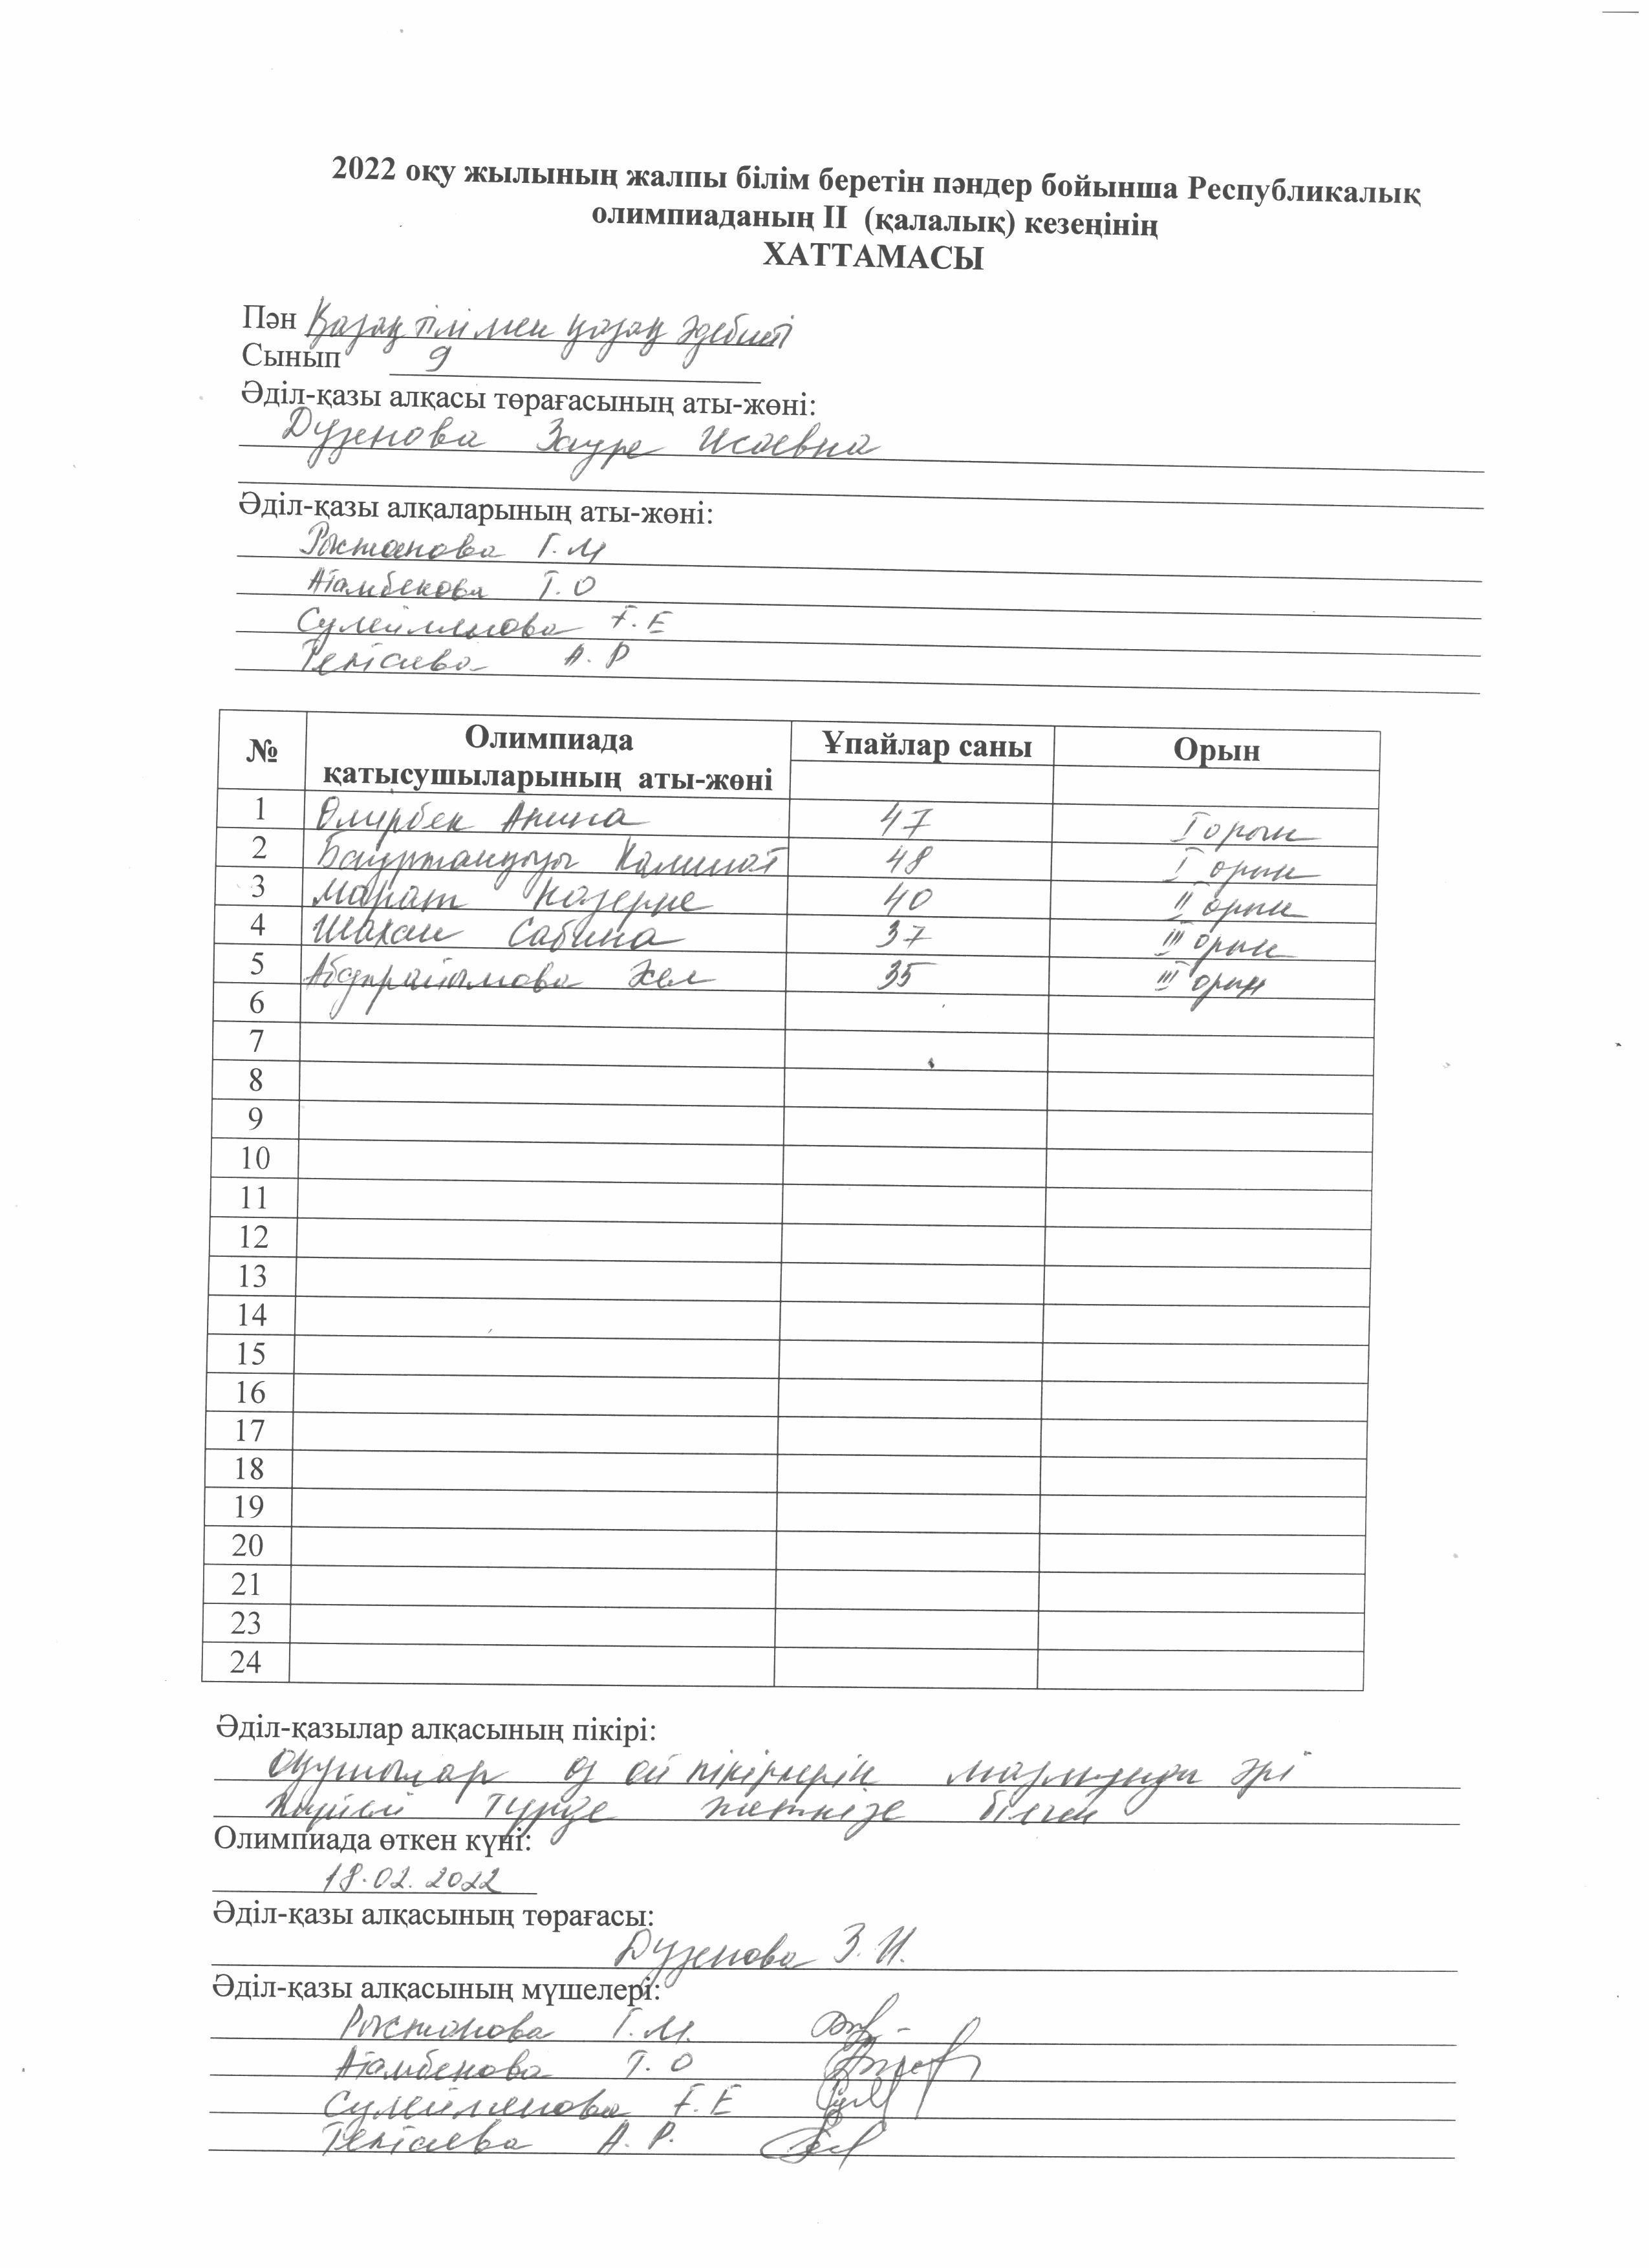 2022 оқу жылының жалпы білім беретін пәндер бойынша Республикалық
олимпиаданың II (қалалық) кезеңінің
ХАТТАМАСЫ
Пән Қазақ тілі мен қазақ әдебиеті
Сынып 9
Әділ-қазы алқасы төрағасының аты-жөні:
Дузенова Зауре Исаевна
Әділ-қазы алқаларының аты-жөні:
Рыстанова Г.М
Атамбекова Т.О
Сулейменова Г.Е
Тентаева А.Р
№ Олимпиада қатысушыларының аты-жөні Ұпайлар саны Орын
1 Өмірбек Анина 47 I орын
2 Бауыржанқызы 48 I орын
3 Марат Назерке 40 II орын
4 Шахан Сабина 37 III орын
5 Абдирайымова Әсел 35 III орын
6
7
8
9
10
11
12
13
14
15
16
17
18
19
20
21
23
24
Әділ-қазылар алқасының пікірі:
Оқушылар өз ой пікірлерін мазмұнды әрі
түрде жеткізе білген
Олимпиада өткен күні:
18.02.2022
Әділ-қазы алқасының төрағасы:
Дузенова З.И.
Әділ-қазы алқасының мүшелері:
Рыстанова Г.М.
Атамбекова Т.О
Сулейменова Г.Е
Тентаева А.Р.